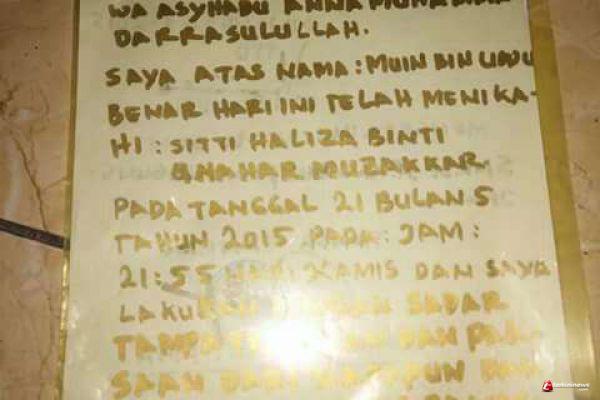 WA ASYHADU ANNA MUHAMMA
DARRASULULLAH.
SAYA ATAS NAMA : MUIN BIN
BENAR HARI INI TELAH MENIKA-
HI : SITTI HALIZA BINTI
MUZAKKAR
PADA TANGGAL 21 BULAN 5
TAHUN 2015 PADA : JAM :
21:55 HARI KAMIS DAN SAYA
LAKUKAN DENGAN SADAR
TAMPA DAN PAK-
SAAN DARI